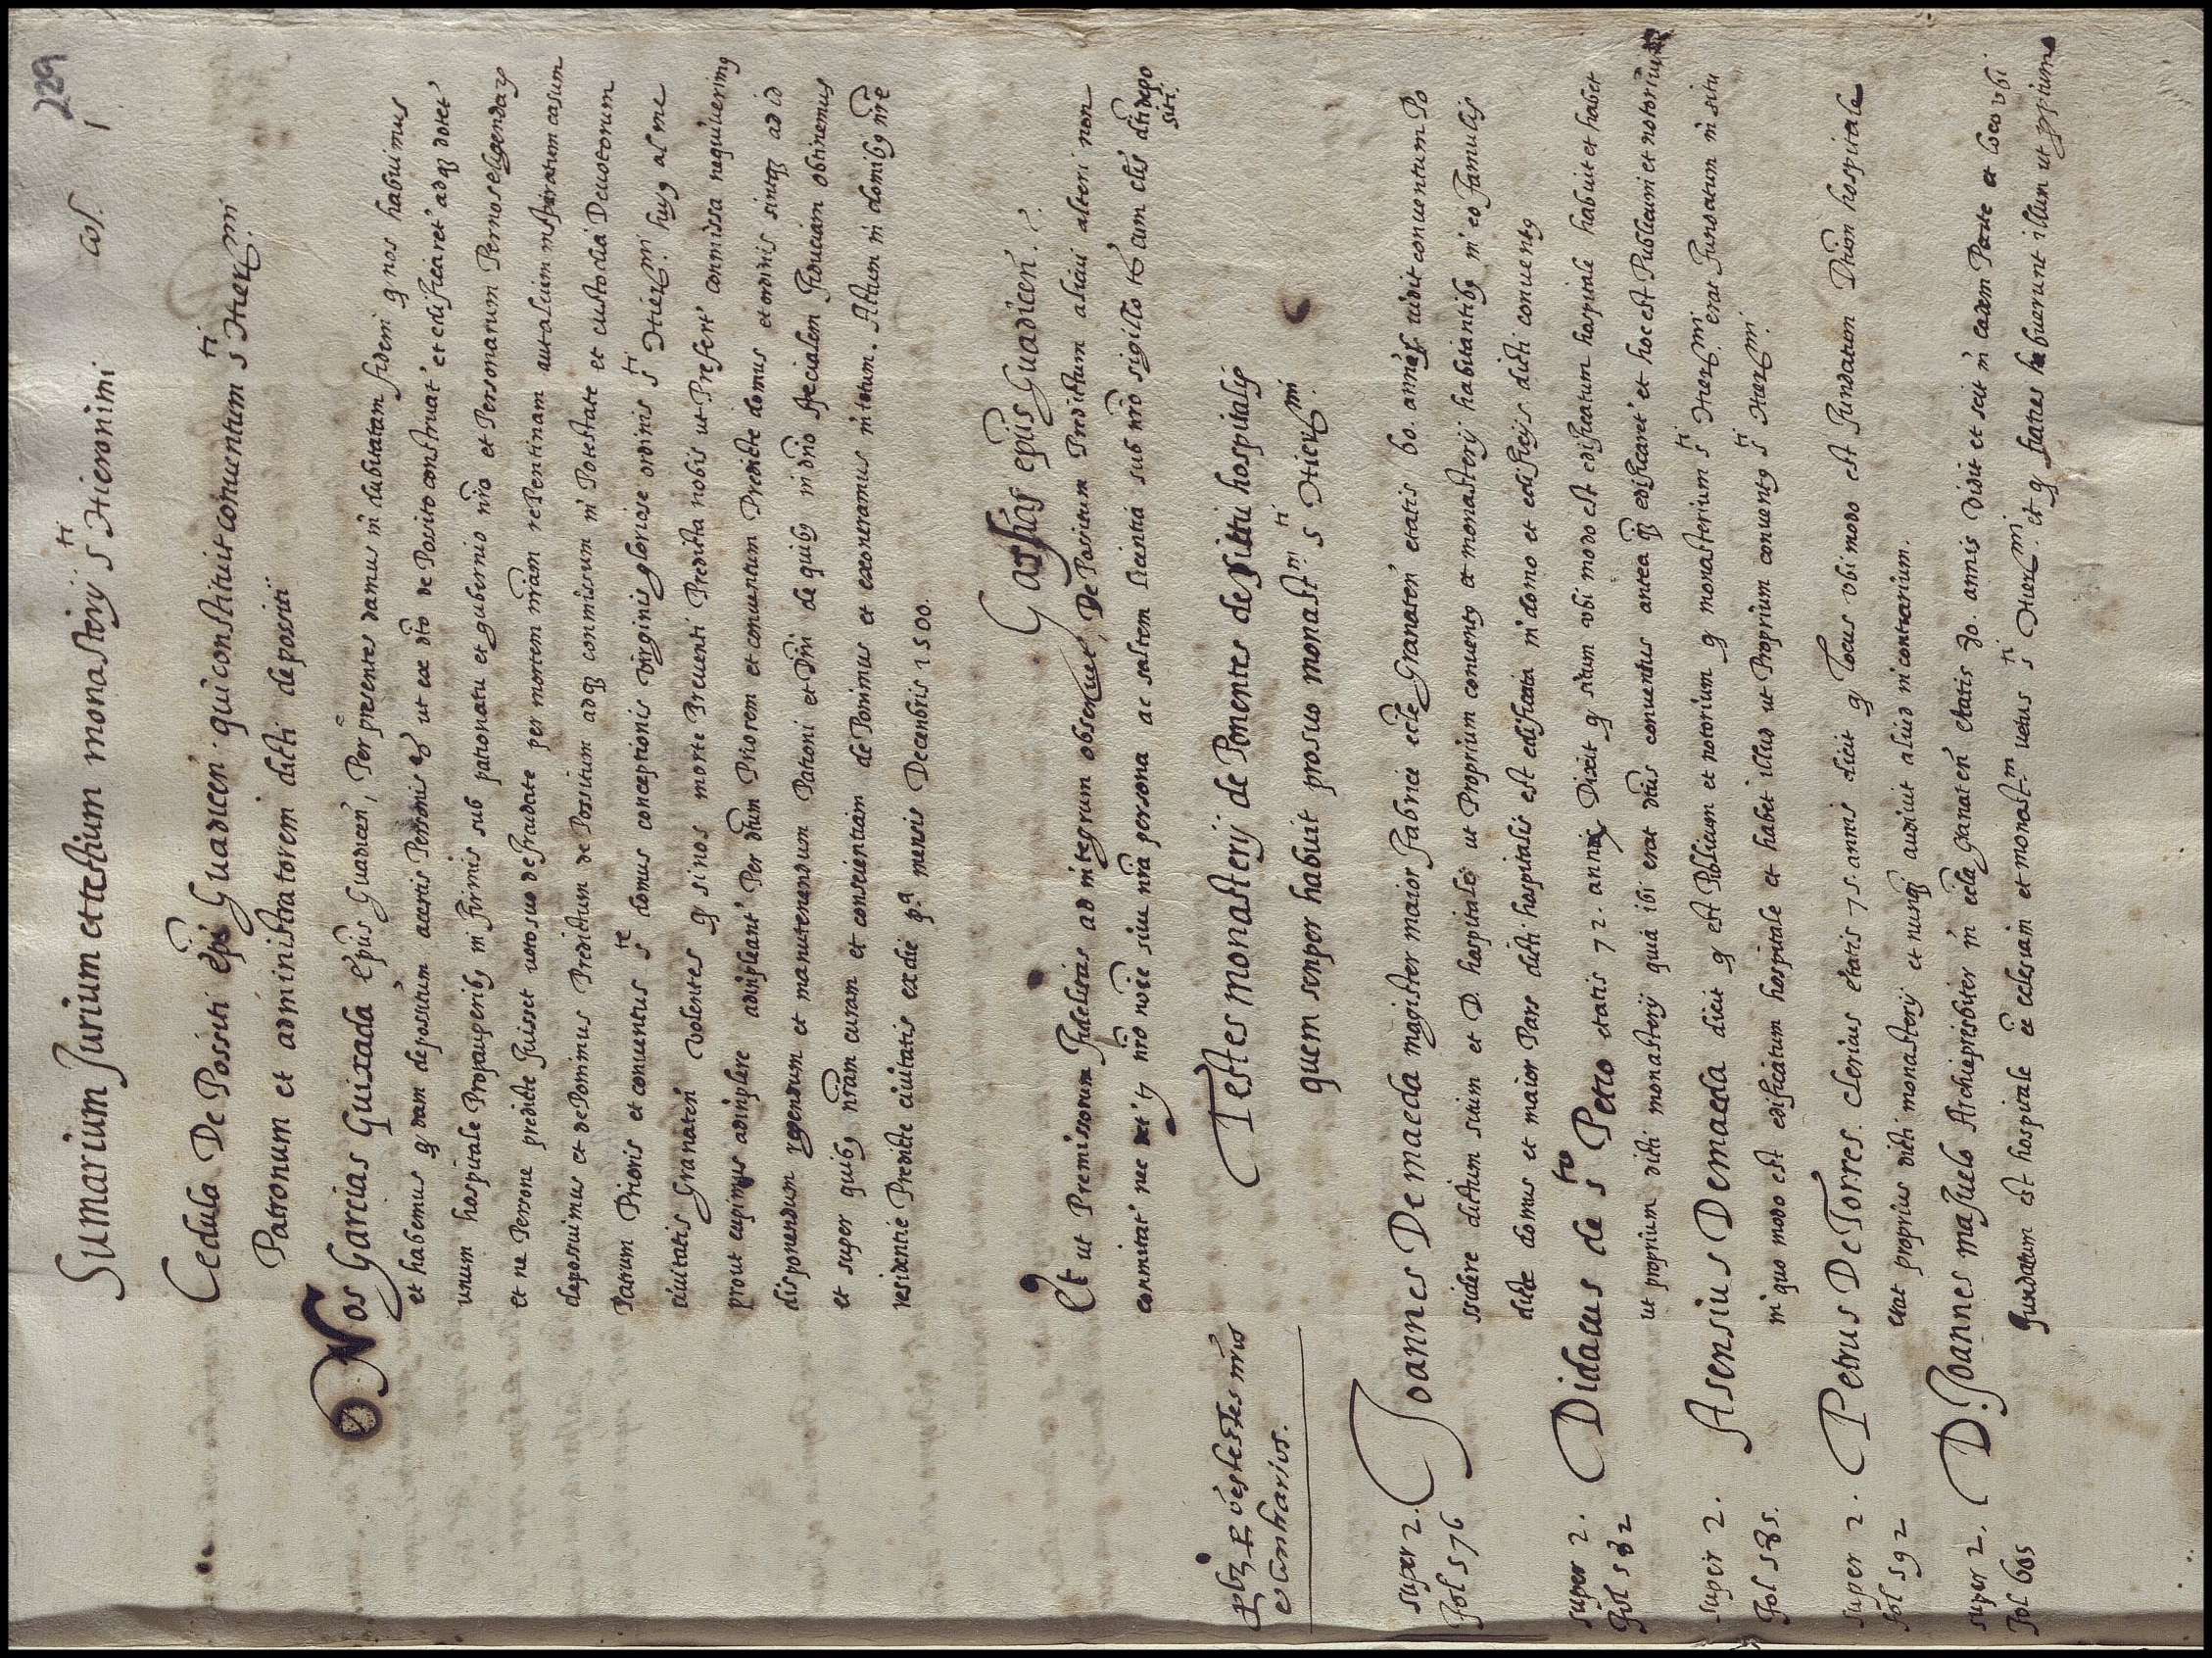 229
cos. 1
Sumarium Jurium et testium monasterij s ti Hieronimi
Cedula De Possiti epi Guadicen qui constituit conuentum s ti Hier mi
Patronum et administratorem dicti depositi
Nos Garcias Quixada epus Guadicen, Per presentes damus indubitatam fidem q nos habuimus
et habemus q dam depositum acertis Personis & ut ex dto de Possito construat et edificaret adq dotet
unum hospitale Propauperibg infirmis sub patronatu et gubernio nro et Personarum Pernos eligendarg
et ne Persone predicte fuisset voto suo defraudate per mortem nram rePentinam aut alium insperatum casum
deposuimus et dePonimus Predictum de Possitum adq conmissum in Potestate et custodia Deuotorum
Patrum Prioris et conuentus s te domus conceptionis virginis gloriose ordinis s ti Hier mi huig alme
ciuitatis Granaten volentes q si nos morte Preuenti Predicta nobis ut Prefert conmissa nequiuerimg
prout cupimus adinplere adinpleant Per dtum Priorem et conuentum Predicte domus et ordinis sintq ad id
disponendum regendum et manutenendum Patroni et Dni de quibg in dno specialem fiduciam obtinemus
et super quibg nram curam et conscientiam dePonimus et exoneramus in totum. Actum in domibg nre
residentie Predicte ciuitatis ex die p.a mensis Decenbris 1500.
Garsias epus Guadicen.
Et ut Premissorum fidelitas ad integrum obseruet, De Positum Predictum alicui alteri non
conmitat nec det ij nro noie siue nra persona ac saltem licentia sub nro sigillo cum dti depo
siti.
Testes monasterij de Ponentes de situ hospitalis
quem senper habuit pro suo monast m s ti Hier mi
testes nros
contrarios.
super 2.
fol 576
Joannes De maeda magister maior fabrice ecle Granaten etatis 60. annis uidit conuentum Po
ssidere dictum situm et D. hospitale ut Proprium conuentg et monasterij habitantibg in eo famulis
dicte domus et maior Pars dicti hospitalis est edificata in domo et edificijs dicti conuentg
super 2.
fol 582
Didacus de s to Petro etatis 72. annis Dixit q situm vbi modo est edificatum hospitale habuit et habet
ut proprium dicti monasterij quia ibi erat dtus conuentus antea q edificaret et hoc est Publicum et notorium
super 2.
fol 585.
Asensius Demaeda dicit q est Publicum et notorium q monasterium s ti Hier mi erat fundatum in situ
in quo modo est edificatum hospitale et habet illud ut Proprium conuentg s ti Hier mi.
super 2.
fol 592
Petrus De Torres. clericus etatis 75. annis dicit q locus vbi modo est fundatum Dtum hospitale
erat proprius dicti monasterij et nunq audiuit aliud in contrarium.
super 2.
fol 605
D. Joannes masuelo Archiepresbiter in ecla granaten etatis 80. annis Dicit et scit in eadem Parte et loco vbi
fundatum est hospitale eē eclesiam et monast m uetus s ti Hier mi. et q fratres habuerunt illum ut pprium